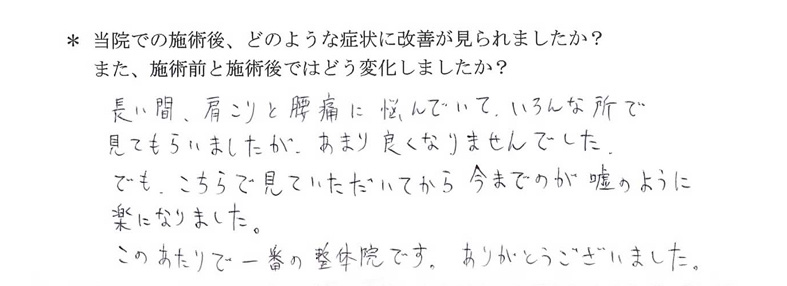 * 当院での施術後、どのような症状に改善が見られましたか？
また、施術前と施術後ではどう変化しましたか？
長い間、肩こりと腰痛に悩んでいて、いろんな所で
見てもらいましたが、あまり良くなりませんでした。
でも、こちらで見ていただいてから今までのが嘘のように
楽になりました。
このあたりで一番の整体院です。ありがとうございました。